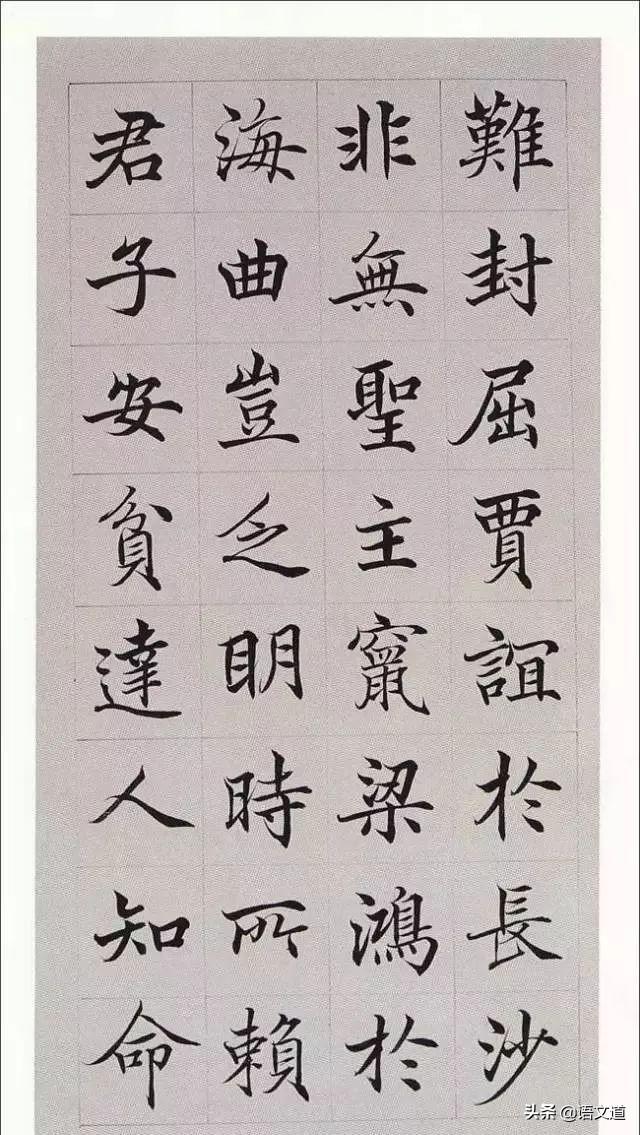 難封屈賈誼於長沙
非無聖主竄梁鴻於
海曲豈乏明時所賴
君子安貧達人知命
头条 @语文道